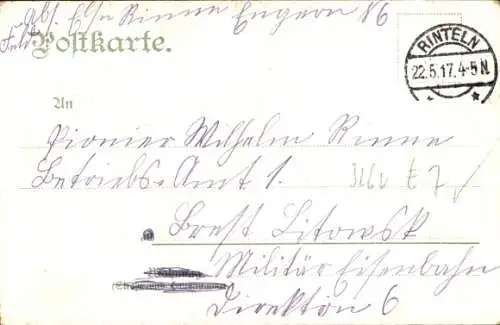 Abs. E. Rinne Engern N6
Feld Postkarte.
RINTELN
22.5.17.4-5N.
An
Pionier Wilhelm Rinne
Betriebs-Amt 1.
Brest Litowsk
Militär Eisenbahn
Direktion 6